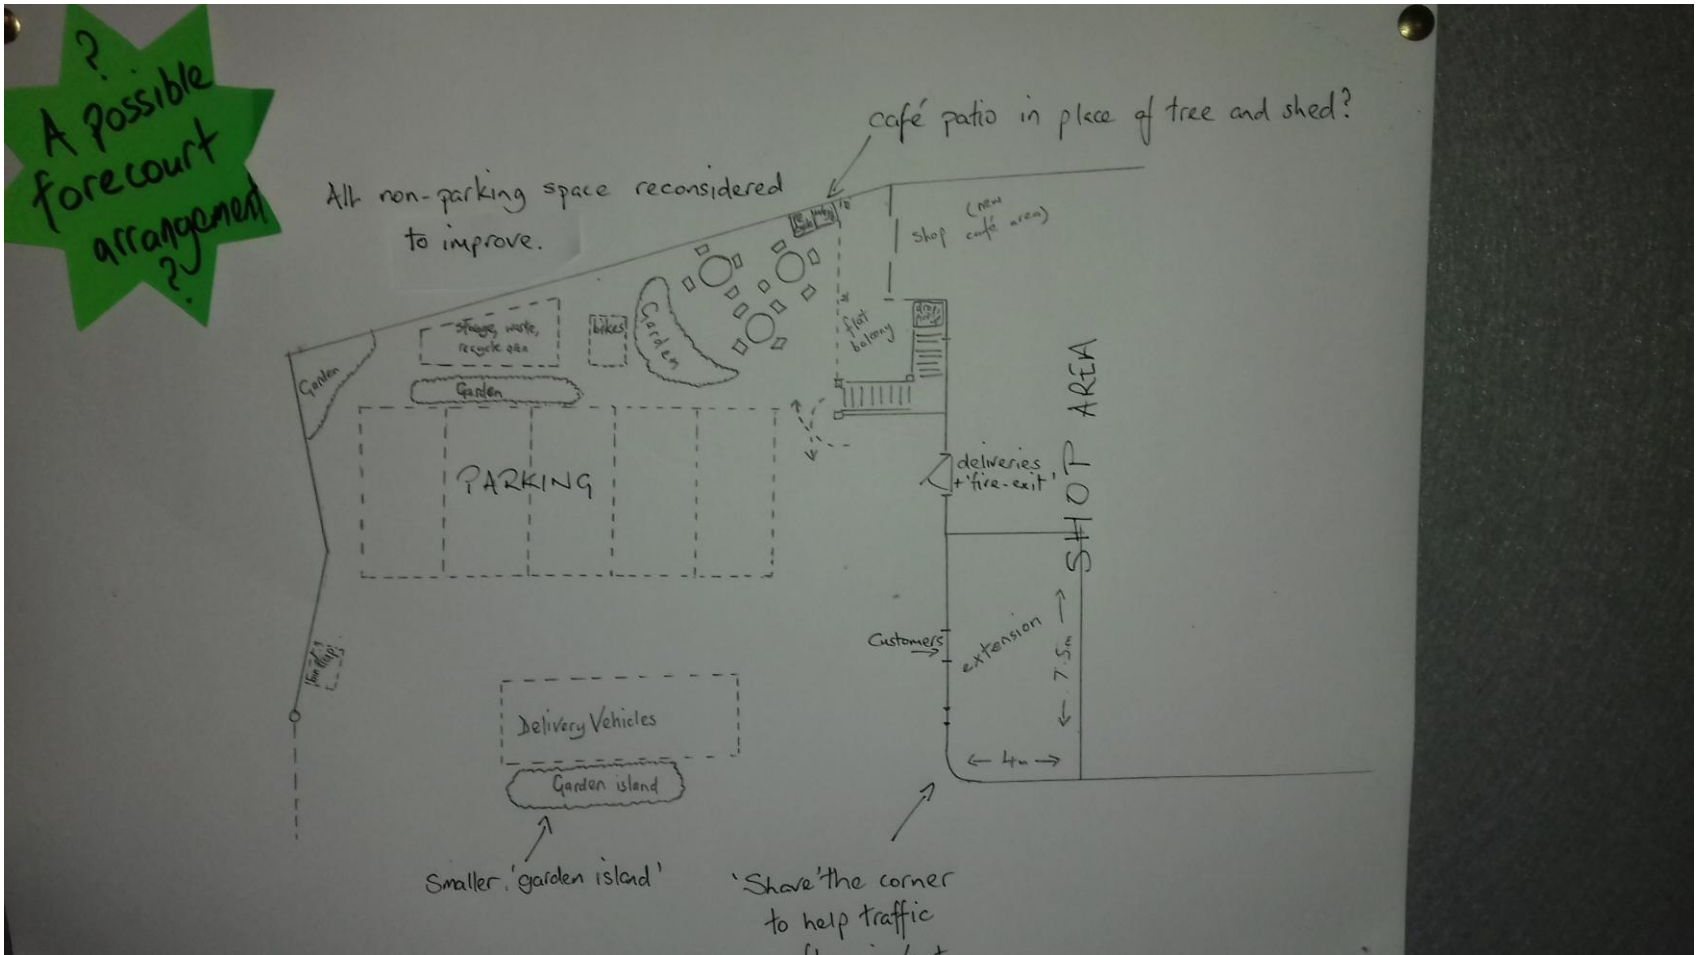 ?
A possible
forecourt
arrangement
?
café patio in place of tree and shed?
All non-parking space reconsidered
to improve.
(new
shop café area)
storage, waste,
recycle area
bikes
Garden
flat
balcony
Garden
Garden
PARKING
SHOP AREA
deliveries
+ 'fire-exit'
Customers
extension
7.5m
4m
Delivery Vehicles
Garden island
Smaller 'garden island'
'Shave' the corner
to help traffic